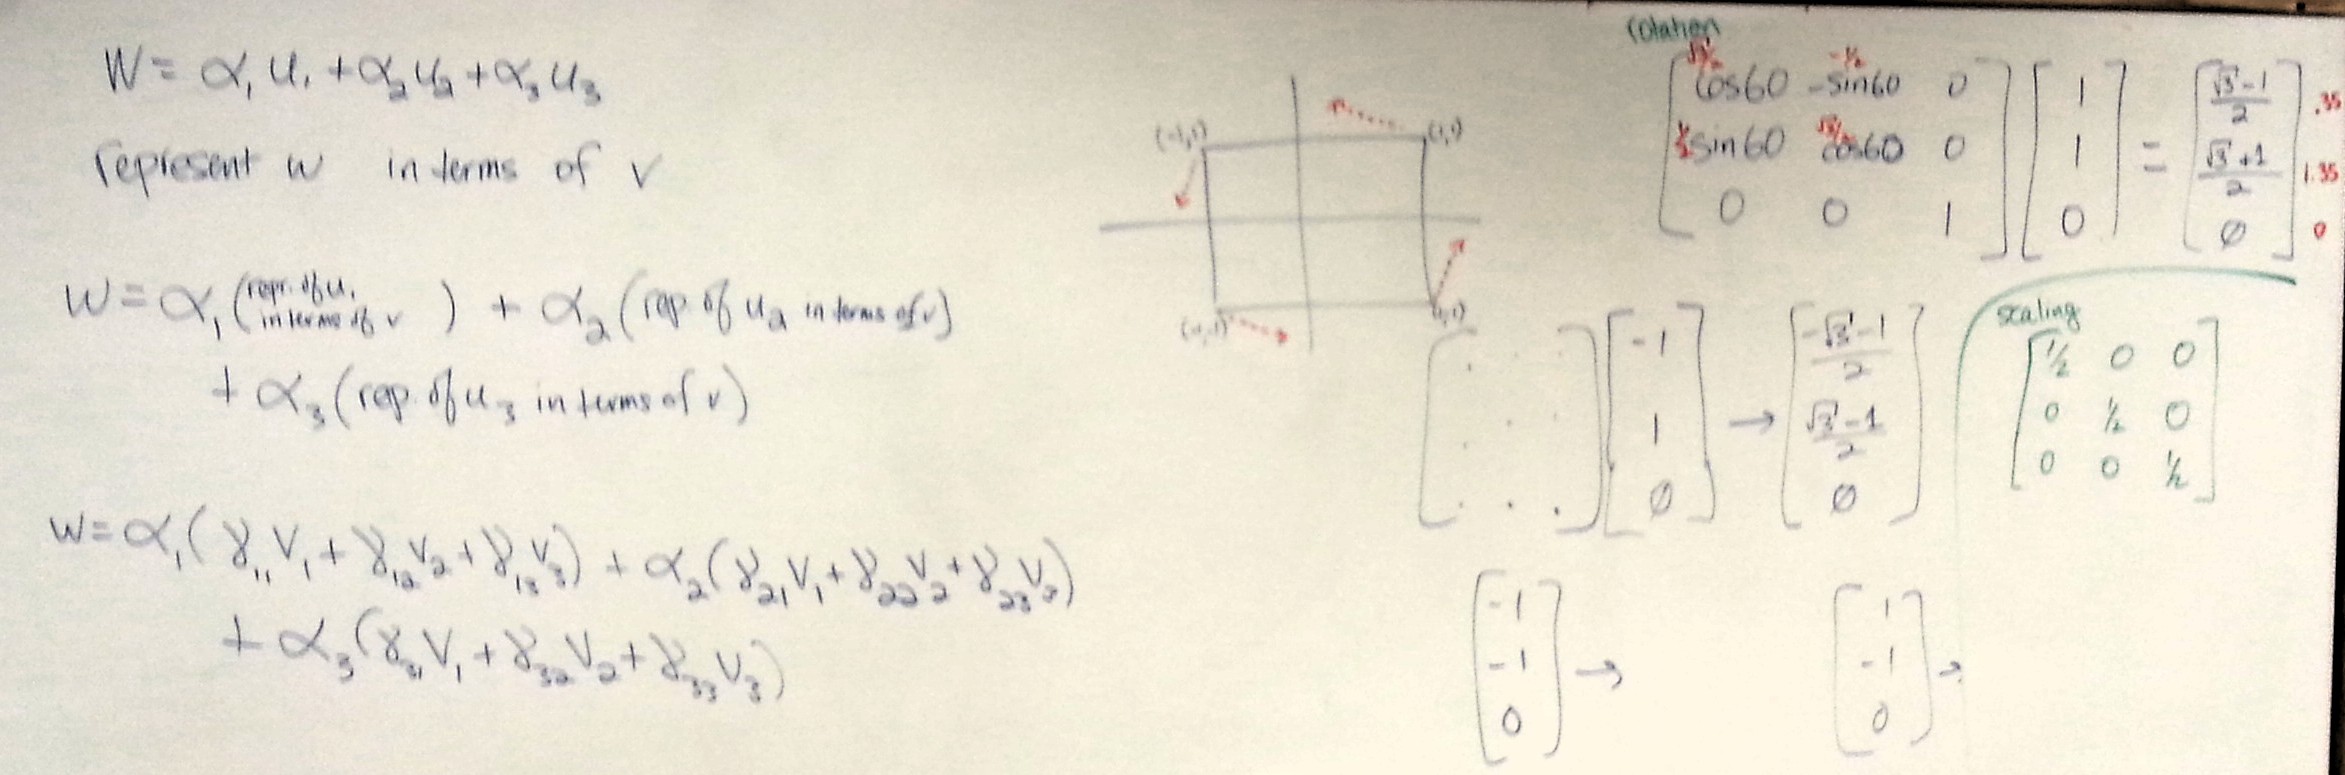 W = α₁u₁ + α₂u₂ + α₃u₃
represent w in terms of v
W = α₁(repr. of u₁ in terms of v) + α₂(rep of u₂ in terms of v)
+ α₃(rep. of u₃ in terms of v)
W = α₁(γ₁₁V₁ + γ₁₂V₂ + γ₁₃V₃) + α₂(γ₂₁V₁ + γ₂₂V₂ + γ₂₃V₃)
+ α₃(γ₃₁V₁ + γ₃₂V₂ + γ₃₃V₃)
(-1,1) (1,1)
rotation
√3/2 -1/2
[cos60 -sin60 0] [1] [(√3-1)/2] .35
1/2 √3/2
[sin60 cos60 0] [1] = [(√3+1)/2] 1.35
[0 0 1] [0] [∅] 0
[. . .] [-1] [(-√3-1)/2]
[. . .] [1] → [(√3-1)/2]
[. . .] [∅] [∅]
scaling
[1/2 0 0]
[0 1/2 0]
[0 0 1/2]
[-1] [1]
[-1] → [-1] →
[0] [0]